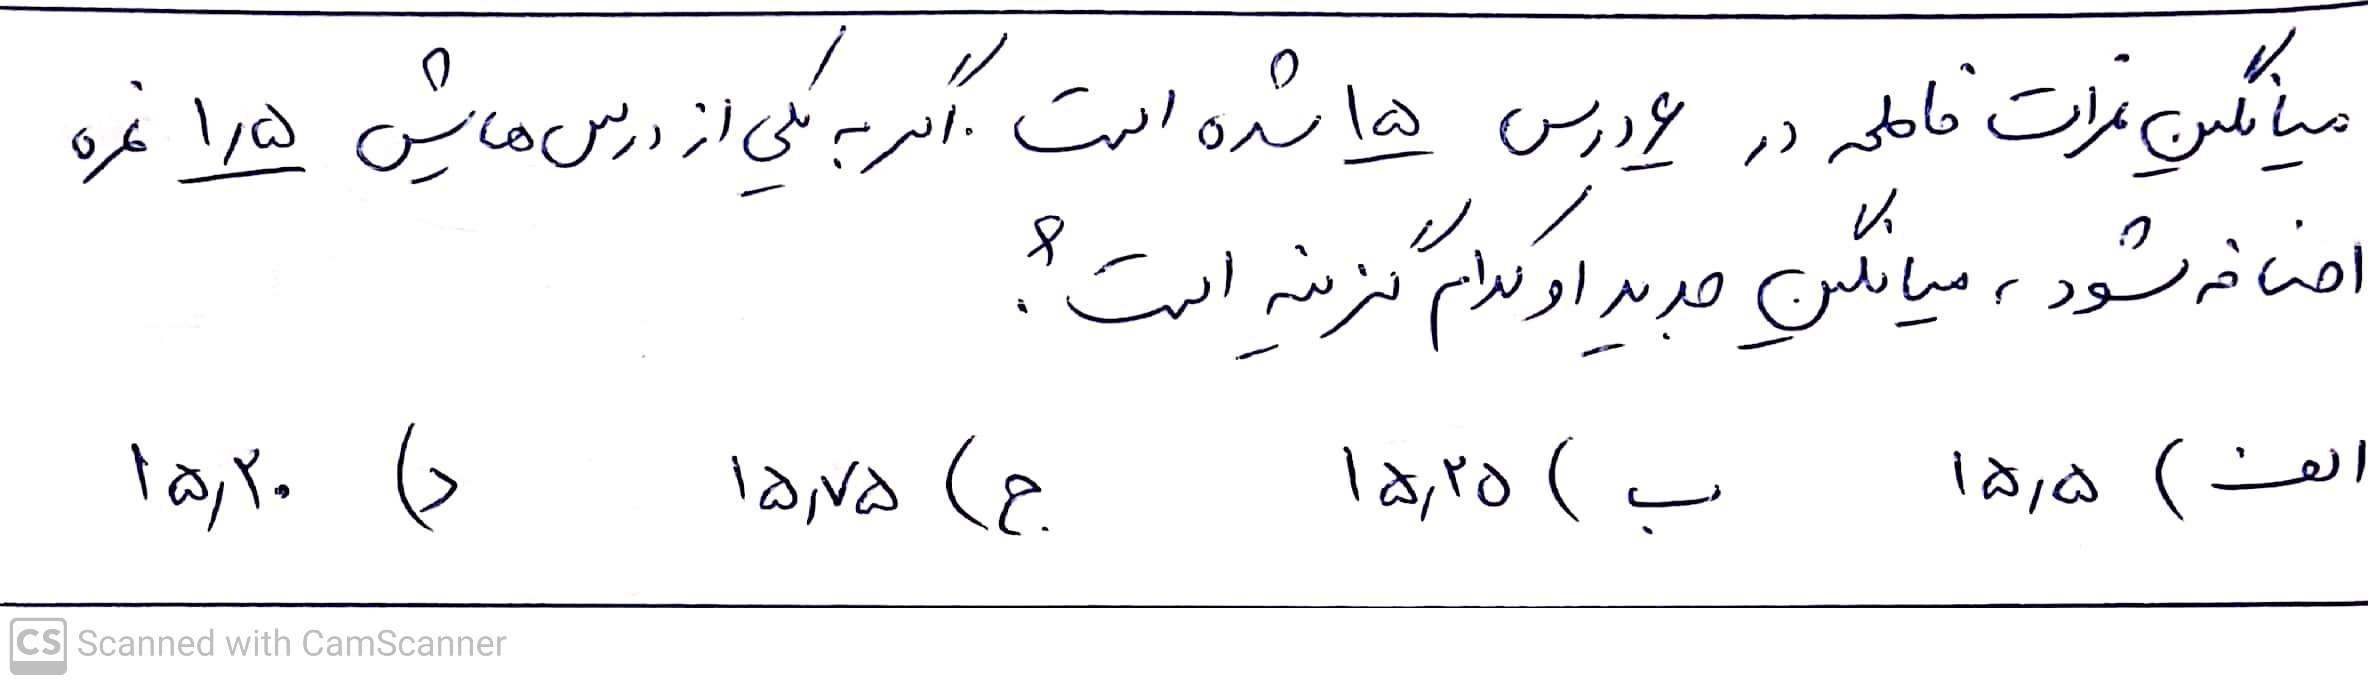 میانگین نمرات فاطمه در ۶ درس ۱۵ شده است. اگر به یکی از درس‌هایش ۱٫۵ نمره
اضافه شود، میانگین جدید او کدام گزینه است؟
الف) ۱۵٫۵ ب) ۱۵٫۲۵ ج) ۱۵٫۷۵ د) ۱۵٫۲۰
CS Scanned with CamScanner